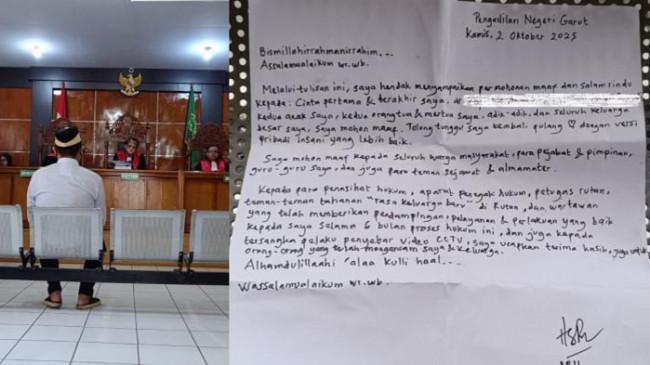 Pengadilan Negeri Garut
Kamis, 2 Oktober 2025
Bismillahirrahmanirrahim...
Assalamualaikum wr.wb.
Melalui tulisan ini, saya hendak menyampaikan permohonan maaf dan salam rindu
kepada: Cinta pertama & terakhir saya,
kedua anak saya, kedua orangtua & mertua saya, adik-adik, dan seluruh keluarga
besar saya, saya mohon maaf. Tolong tunggu saya kembali pulang ♡ dengan versi
pribadi insani yang lebih baik.
Saya mohon maaf kepada seluruh warga masyarakat, para pejabat & pimpinan,
guru-guru saya, dan juga para teman sejawat & almamater.
Kepada para penasihat hukum, aparat penegak hukum, petugas rutan,
teman-teman tahanan "rasa keluarga baru" di Rutan, dan wartawan
yang telah memberikan pendampingan, pelayanan & perlakuan yang baik
kepada saya selama 6 bulan proses hukum ini, dan juga kepada
tersangka pelaku penyebar video CCTV, saya ucapkan terima kasih, juga untuk
orang-orang yang telah mengancam saya & keluarga.
Alhamdulillaahi 'alaa kulli haal...
Wassalamualaikum wr.wb.